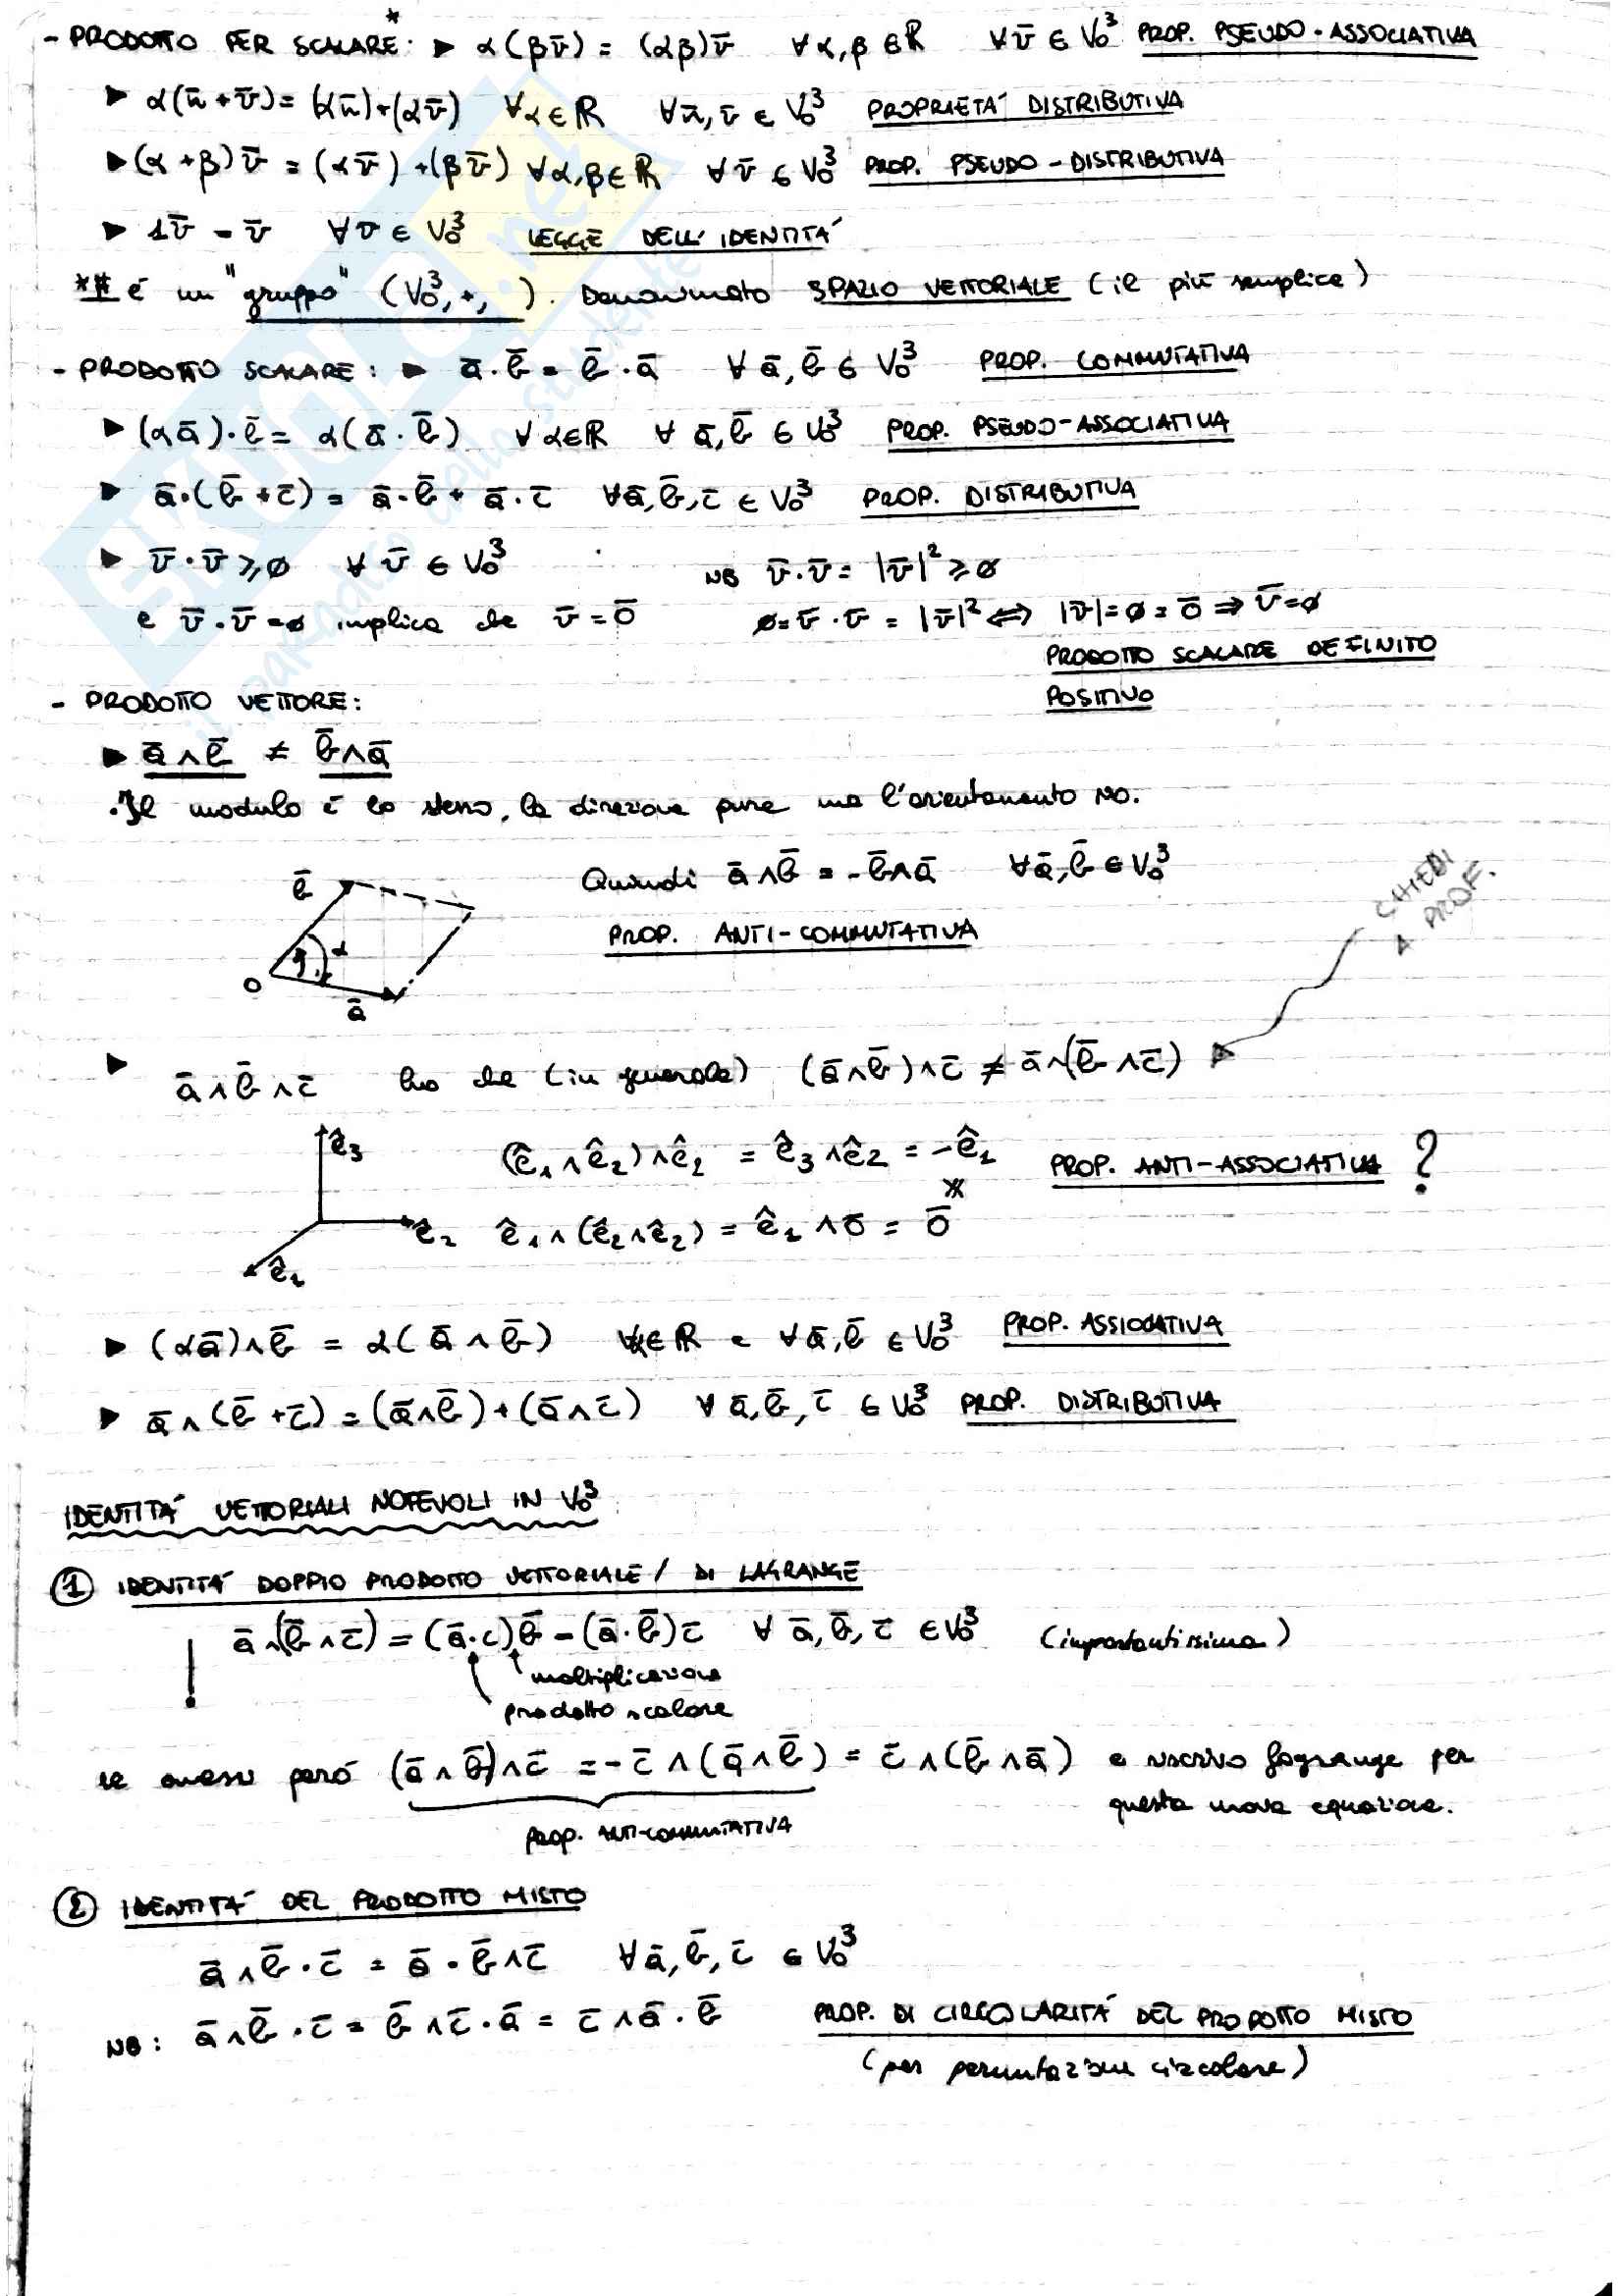 *
- PRODOTTO PER SCALARE: ▶ α(βv̄) = (αβ)v̄ ∀α,β∈ℝ ∀v̄∈V₀³ PROP. PSEUDO-ASSOCIATIVA
▶ α(ū+v̄) = (αū)+(αv̄) ∀α∈ℝ ∀ū,v̄∈V₀³ PROPRIETÀ DISTRIBUTIVA
▶ (α+β)v̄ = (αv̄)+(βv̄) ∀α,β∈ℝ ∀v̄∈V₀³ PROP. PSEUDO-DISTRIBUTIVA
▶ 1v̄ = v̄ ∀v̄∈V₀³ LEGGE DELL'IDENTITÀ
** è un "gruppo" (V₀³,+, ). Denominato SPAZIO VETTORIALE (il più semplice)
- PRODOTTO SCALARE: ▶ ā·b̄ = b̄·ā ∀ā,b̄∈V₀³ PROP. COMMUTATIVA
▶ (αā)·b̄ = α(ā·b̄) ∀α∈ℝ ∀ā,b̄∈V₀³ PROP. PSEUDO-ASSOCIATIVA
▶ ā·(b̄+c̄) = ā·b̄ + ā·c̄ ∀ā,b̄,c̄∈V₀³ PROP. DISTRIBUTIVA
▶ v̄·v̄ ≥ ø ∀v̄∈V₀³ NB v̄·v̄ = |v̄|² ≥ ø
e v̄·v̄ = ø implica che v̄ = ō ø = v̄·v̄ = |v̄|² ⇔ |v̄| = ø = ō ⇒ v̄ = ø
PRODOTTO SCALARE DEFINITO
POSITIVO
- PRODOTTO VETTORE:
▶ ā∧b̄ ≠ b̄∧ā
. Il modulo è lo stesso, la direzione pure ma l'orientamento NO.
b̄
α
O
ā
Quindi ā∧b̄ = -b̄∧ā ∀ā,b̄∈V₀³
PROP. ANTI-COMMUTATIVA
CHIEDI
A PROF.
▶ ā∧b̄∧c̄ ho che (in generale) (ā∧b̄)∧c̄ ≠ ā∧(b̄∧c̄)
ê₃
ê₂
ê₁
(ê₁∧ê₂)∧ê₂ = ê₃∧ê₂ = -ê₁ PROP. ANTI-ASSOCIATIVA ?
ê₁∧(ê₂∧ê₂) = ê₁∧ō = ō
▶ (αā)∧b̄ = α(ā∧b̄) ∀α∈ℝ e ∀ā,b̄∈V₀³ PROP. ASSIOCATIVA
▶ ā∧(b̄+c̄) = (ā∧b̄)+(ā∧c̄) ∀ā,b̄,c̄∈V₀³ PROP. DISTRIBUTIVA
IDENTITÀ VETTORIALI NOTEVOLI IN V₀³
① IDENTITÀ DOPPIO PRODOTTO VETTORIALE / DI LAGRANGE
! ā∧(b̄∧c̄) = (ā·c)b̄ - (ā·b̄)c̄ ∀ā,b̄,c̄∈V₀³ (importantissima)
moltiplicazione
prodotto scalare
se avessi però (ā∧b̄)∧c̄ = -c̄∧(ā∧b̄) = c̄∧(b̄∧ā) e riscrivo Lagrange per
questa nuova equazione.
PROP. ANTI-COMMUTATIVA
② IDENTITÀ DEL PRODOTTO MISTO
ā∧b̄·c̄ = ā·b̄∧c̄ ∀ā,b̄,c̄∈V₀³
NB: ā∧b̄·c̄ = b̄∧c̄·ā = c̄∧ā·b̄ PROP. DI CIRCOLARITÀ DEL PRODOTTO MISTO
(per permutazione circolare)
SKUOLA.net